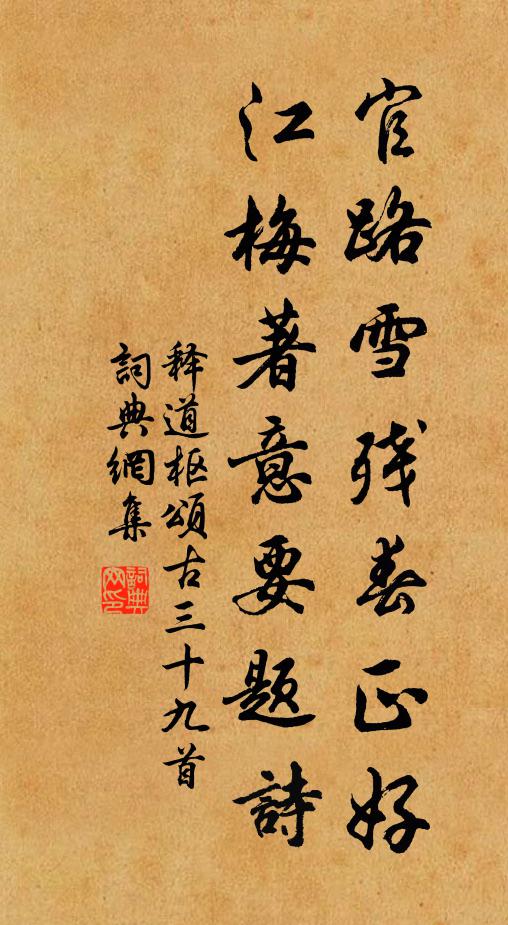 官路雪残春正好
江梅著意要题詩
释道枢頌古三十九首
詞典網集
詞典网印